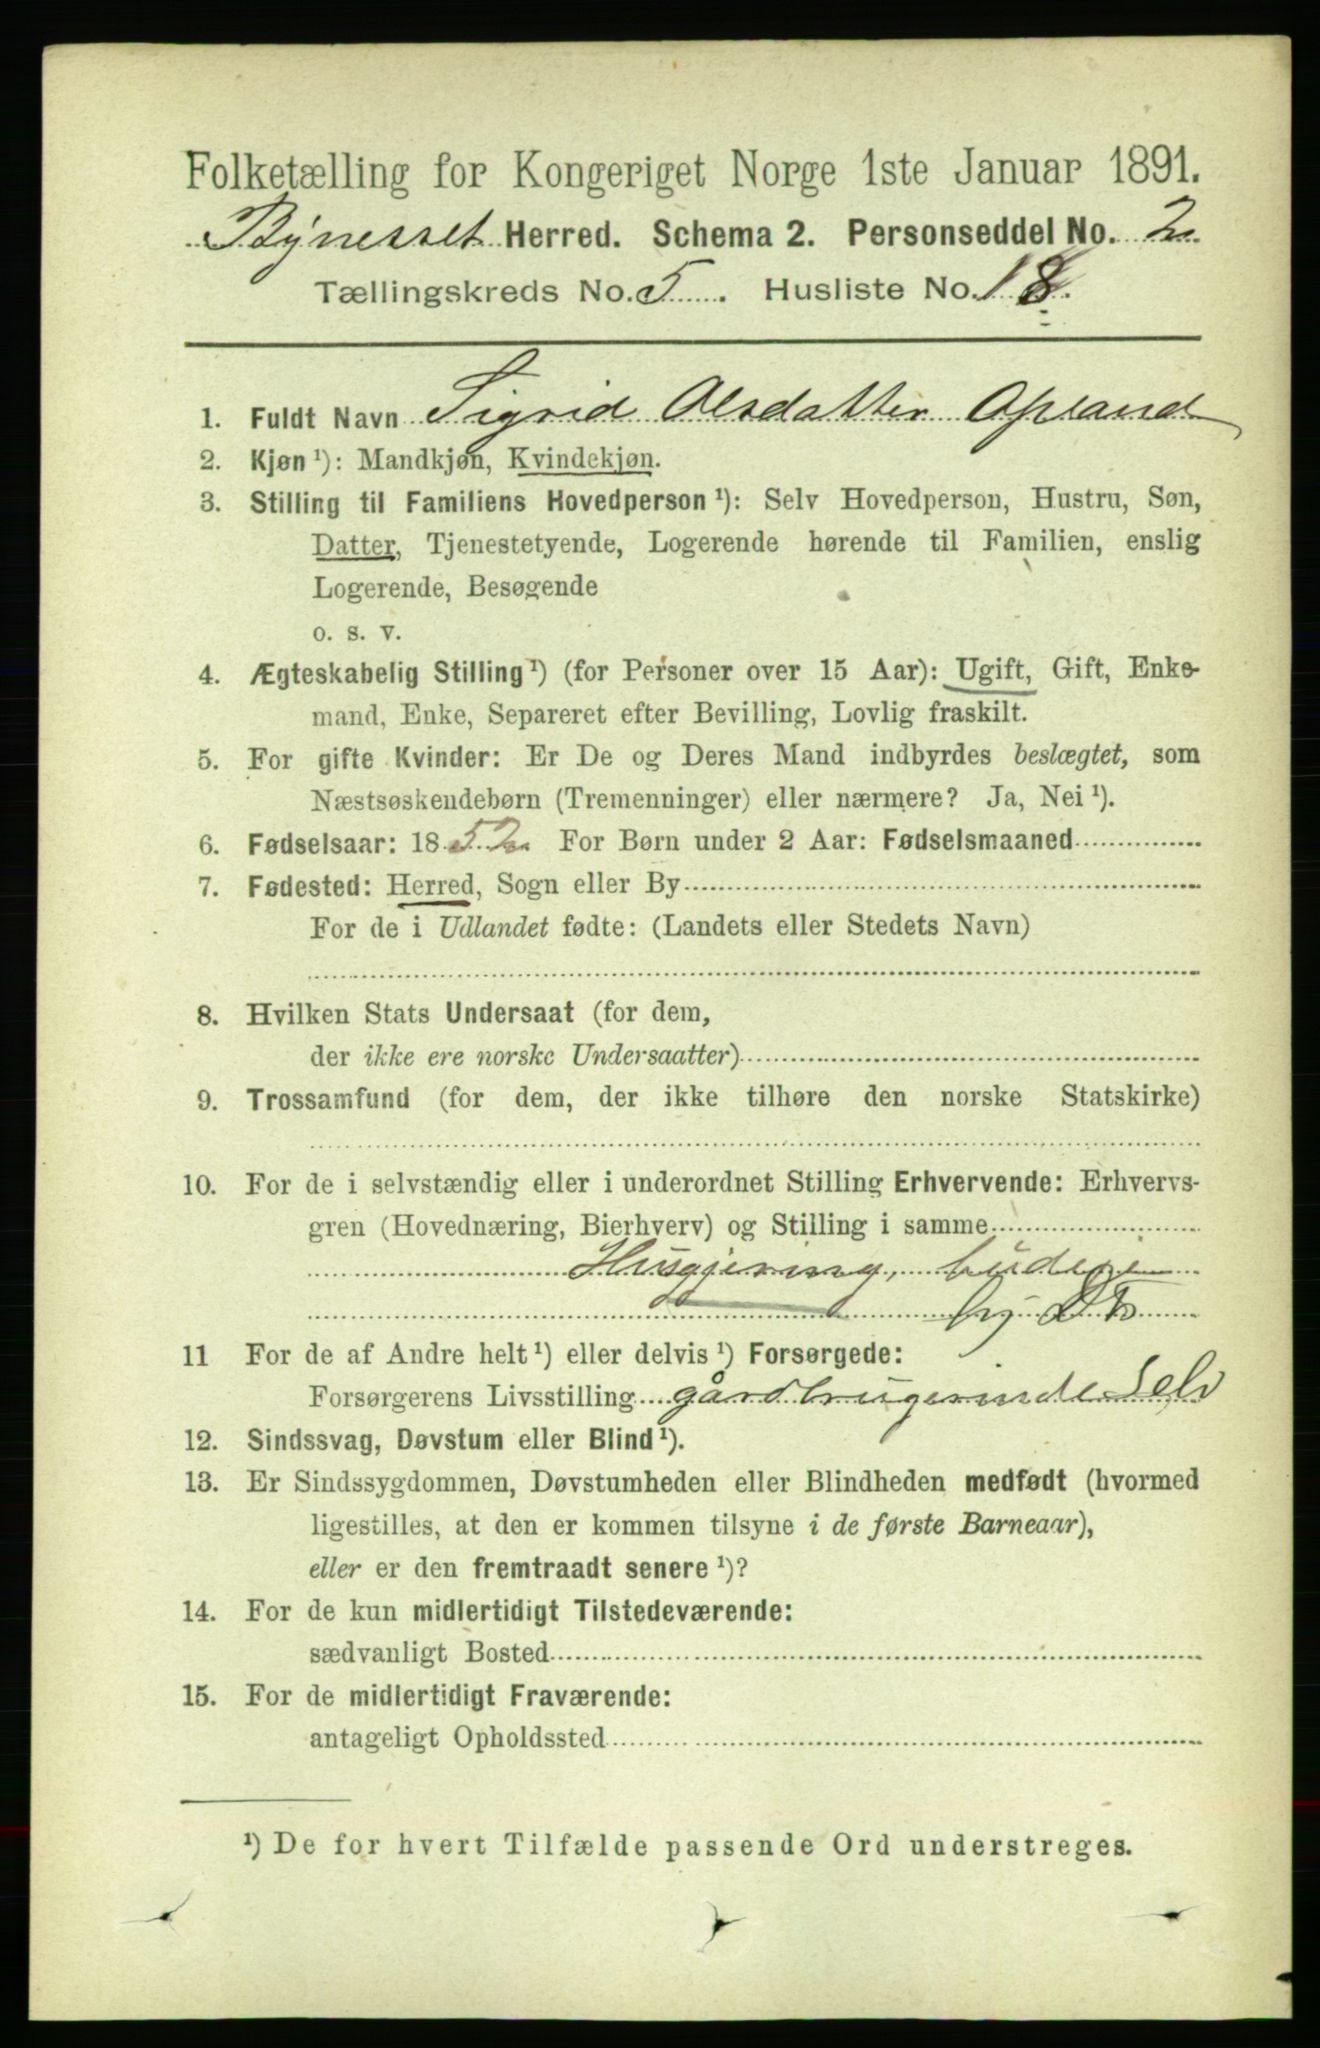 Folketælling for Kongeriget Norge 1ste Januar 1891.
Bynesset Herred. Schema 2. Personseddel No. 2
Tællingskreds No. 5. Husliste No. 18.
1. Fuldt Navn Sigrid Olsdatter Opland
2. Kjøn ¹): Mandkjøn, Kvindekjøn.
3. Stilling til Familiens Hovedperson ¹): Selv Hovedperson, Hustru, Søn,
Datter, Tjenestetyende, Logerende hørende til Familien, enslig
Logerende, Besøgende
o. s. v.
4. Ægteskabelig Stilling ¹) (for Personer over 15 Aar): Ugift, Gift, Enke-
mand, Enke, Separeret efter Bevilling, Lovlig fraskilt.
5. For gifte Kvinder: Er De og Deres Mand indbyrdes beslægtet, som
Næstsøskendebørn (Tremenninger) eller nærmere? Ja, Nei ¹).
6. Fødselsaar: 1852 For Børn under 2 Aar: Fødselsmaaned
7. Fødested: Herred, Sogn eller By
For de i Udlandet fødte: (Landets eller Stedets Navn)
8. Hvilken Stats Undersaat (for dem,
der ikke ere norske Undersaatter)
9. Trossamfund (for dem, der ikke tilhøre den norske Statskirke)
10. For de i selvstændig eller i underordnet Stilling Erhvervende: Erhvervs-
gren (Hovednæring, Bierhverv) og Stilling i samme
Husgjerning, budeie
11 For de af Andre helt ¹) eller delvis ¹) Forsørgede:
Forsørgerens Livsstilling gårdbrugerinde Selv
12. Sindssvag, Døvstum eller Blind ¹).
13. Er Sindssygdommen, Døvstumheden eller Blindheden medfødt (hvormed
ligestilles, at den er kommen tilsyne i de første Barneaar),
eller er den fremtraadt senere ¹)?
14. For de kun midlertidigt Tilstedeværende:
sædvanligt Bosted
15. For de midlertidigt Fraværende:
antageligt Opholdssted
¹) De for hvert Tilfælde passende Ord understreges.